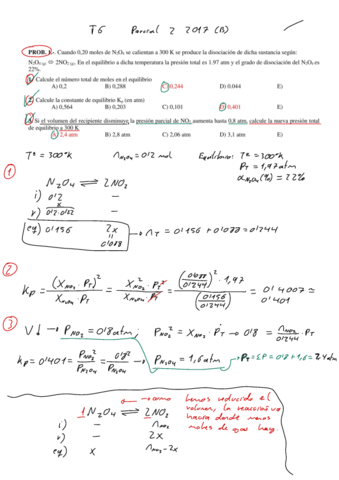 T6 Parcial 2 2017 (B)
PROB. 1.- Cuando 0,20 moles de N₂O₄ se calientan a 300 K se produce la disociación de dicha sustancia según:
N₂O₄ (g) ⇔ 2NO₂ (g). En el equilibrio a dicha temperatura la presión total es 1.97 atm y el grado de disociación del N₂O₄ es
22%.
1. Calcule el número total de moles en el equilibrio
A) 0,2 B) 0,288 C) 0,244 D) 0.044 E)
2. Calcule la constante de equilibrio Kp (en atm)
A) 0,564 B) 0,203 C) 0,101 D) 0,401 E)
3. Si el volumen del recipiente disminuye la presión parcial de NO₂ aumenta hasta 0,8 atm, calcule la nueva presión total
de equilibrio a 300 K
A) 2,4 atm B) 2,8 atm C) 2,06 atm D) 3,1 atm E)
Tª = 300ºK n N₂O₄ = 0'2 mol Equilibrio: Tª = 300ºK
P_T = 1,97 atm
α N₂O₄ (%) = 22%
1
N₂O₄ ⇌ 2NO₂
i) 0'2 —
x
r) 0'2·0'22 —
eq) 0'156 2x → n_T = 0'156 + 0'088 = 0'244
0'088
2
Kp = (X NO₂ · P_T)² / X N₂O₄ · P_T = X² NO₂ · P_T² / X N₂O₄ · P_T = (0'088/0'244)² · 1,97 / (0'156/0'244) = 0'4007 ≃
0'401
3 V↓ → P NO₂ = 0'8 atm; P NO₂ = X NO₂ · P_T → 0'8 = n NO₂/0'244 · P_T
Kp = 0'401 = P² NO₂ / P N₂O₄ = 0'8² / P N₂O₄ → P N₂O₄ = 1,6 atm → P_T = ΣP = 0'8 + 1,6 = 2'4 atm
← como hemos reducido el
volumen, la reacción va
hacia donde menos
moles de gas hay.
1 N₂O₄ ⇌ 2NO₂
i) — n NO₂
r) — 2x
eq) x n NO₂ - 2x